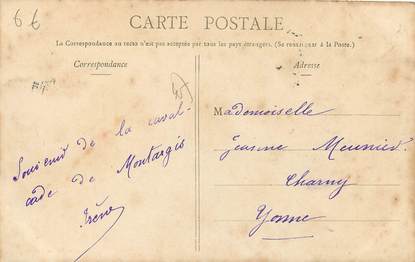 6€
CARTE POSTALE
La Correspondance au recto n'est pas acceptée par tous les pays étrangers. (Se renseigner à la Poste.)
Correspondance
Adresse
Souvenir de la caval-
cade de Montargis
Irène
Mademoiselle
Jeanne Meunier
Charny
Yonne